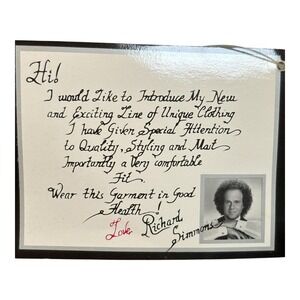 Hi!
I would Like to Introduce My New
and Exciting Line of Unique Clothing
I have Given Special Attention
to Quality, Styling and Most
Importantly a Very comfortable
Fit
Wear this Garment in Good
Health!
Love Richard
Simmons